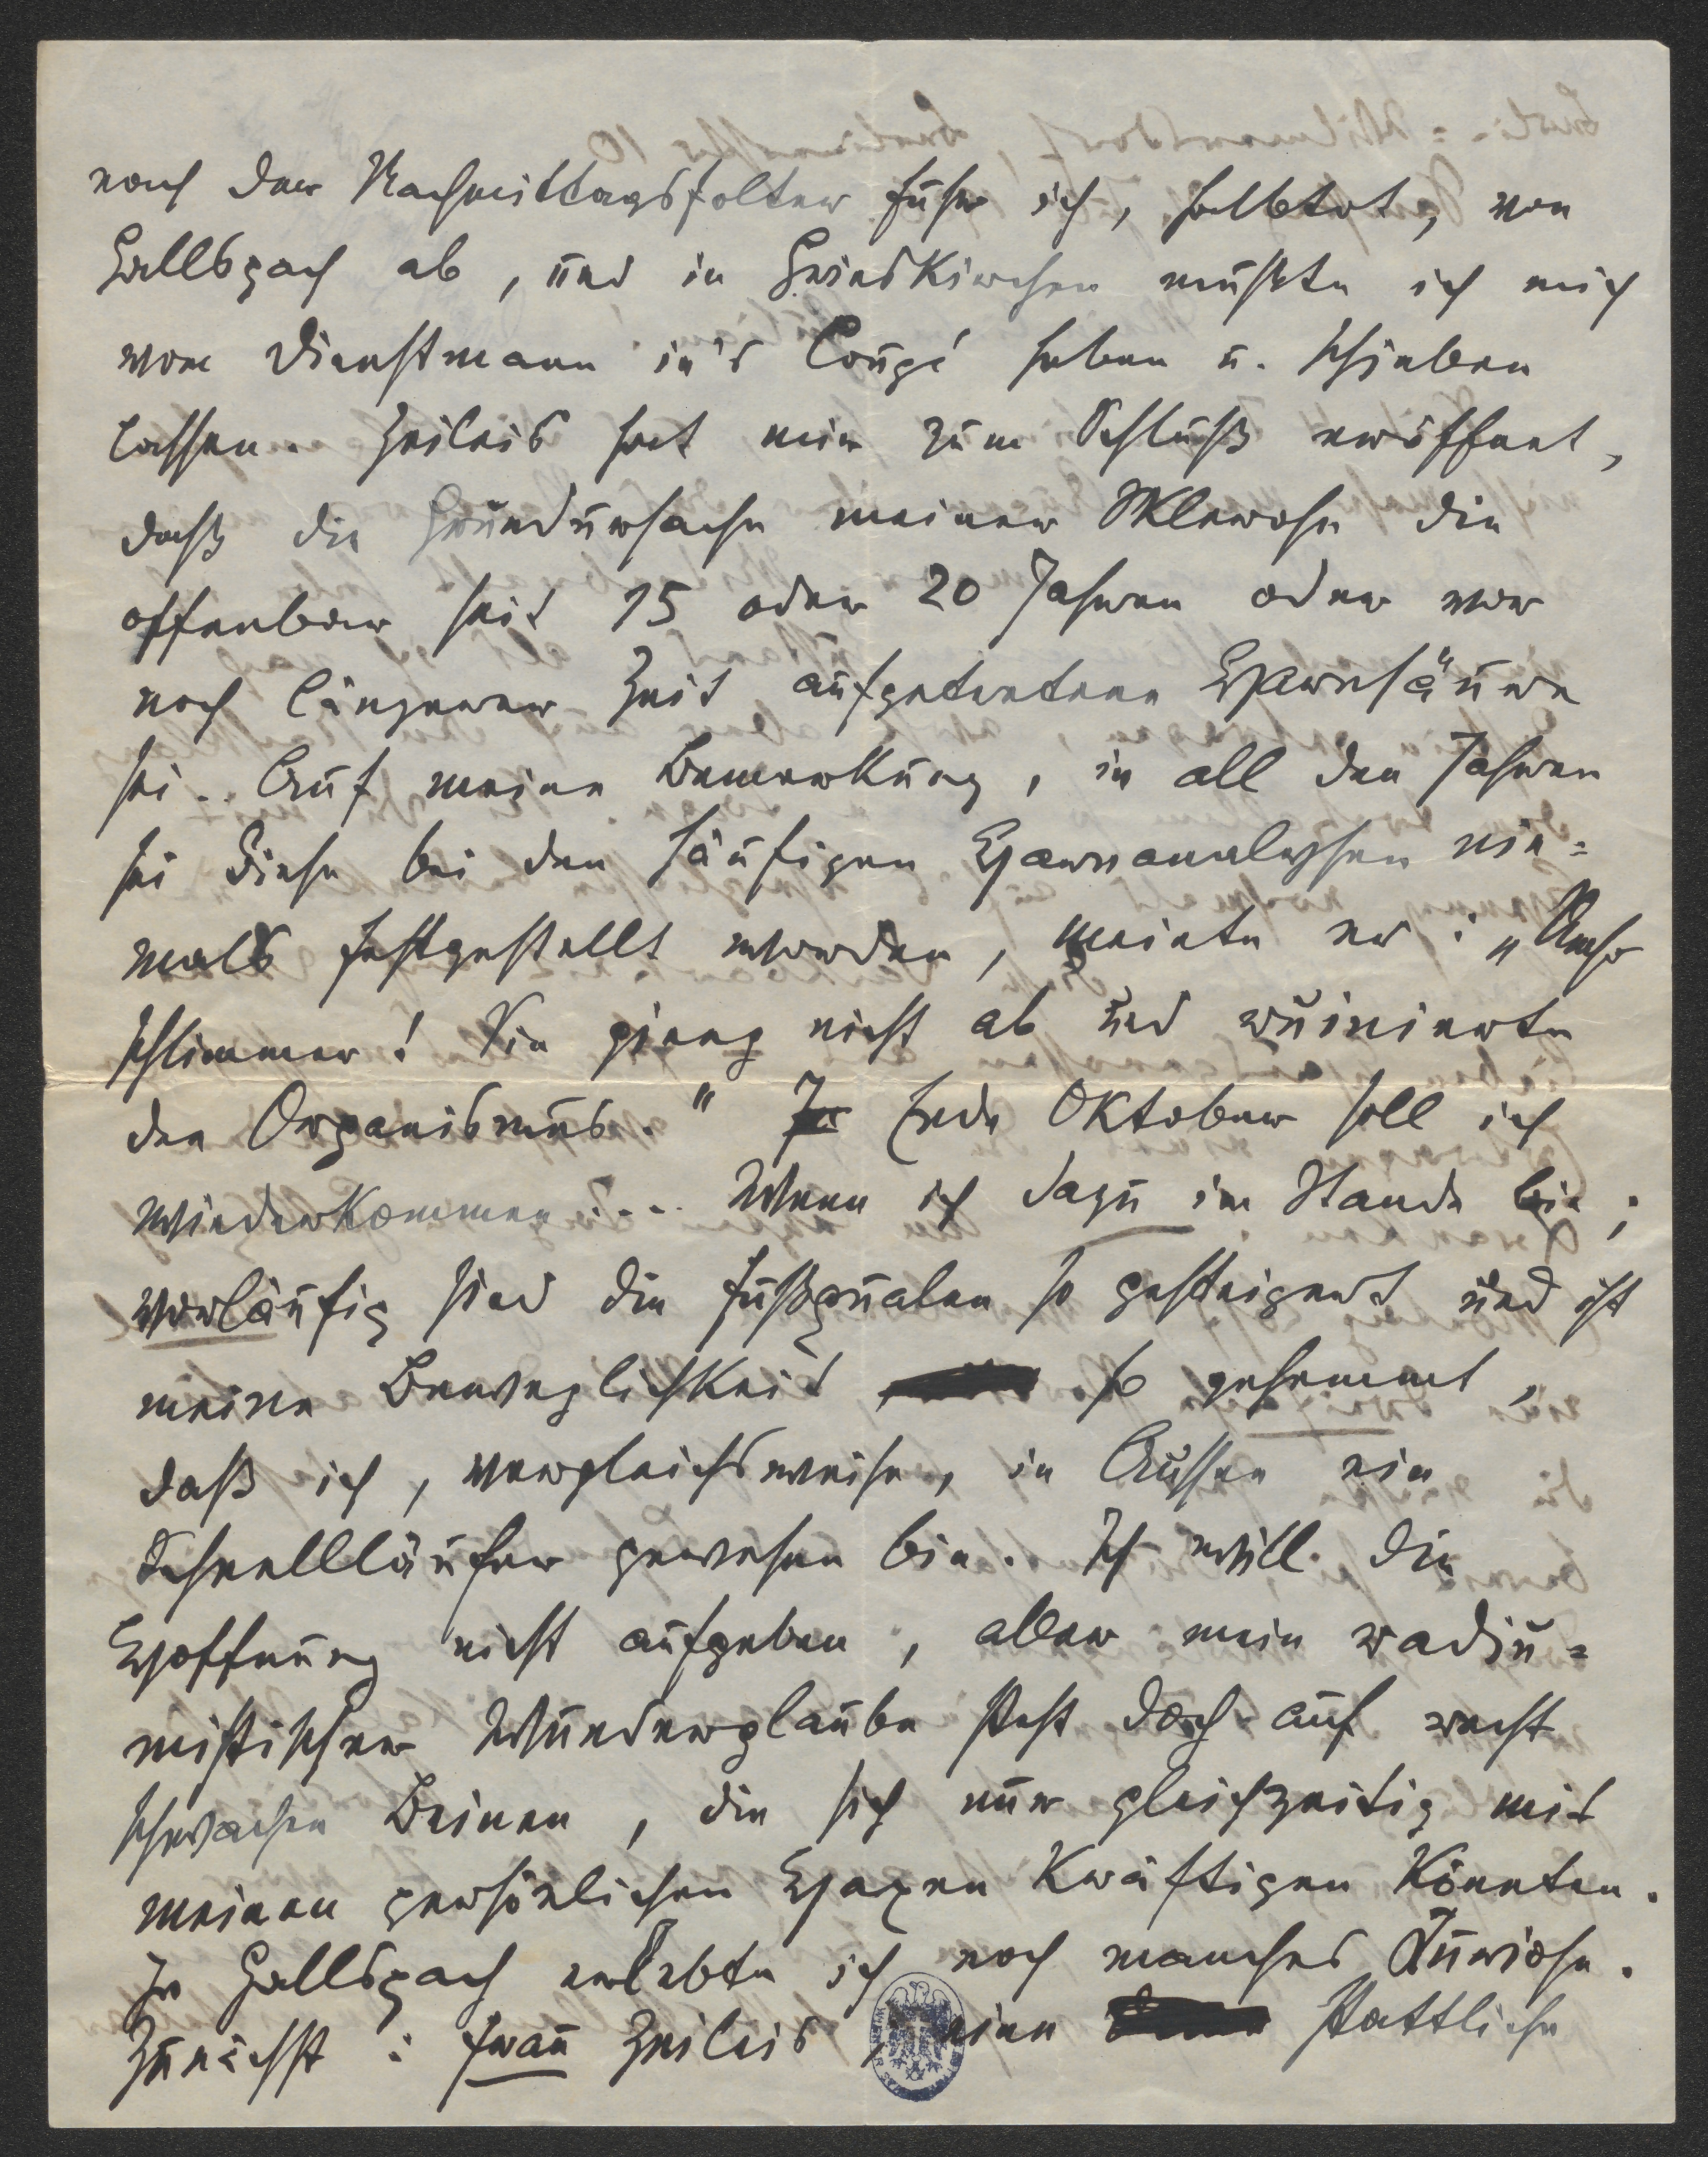 nach der Nachmittagsfolter fuhr ich, halbtot, von
Gallspach ab, und in Grieskirchen mußte ich mich
vom Dienstmann in's Coupé heben u. schieben
lassen. Zeileis hat mir zum Schluß eröffnet,
daß die Grundursache meiner Sklerose die
offenbar seit 15 oder 20 Jahren oder vor
noch längerer Zeit aufgetretene Harnsäure
sei.. Auf meine Bemerkung, in all den Jahren
sei diese bei den häufigen Harnanalysen nie=
mals festgestellt worden, meinte er: „Umso
schlimmer! Sie gieng nicht ab und ruinierte
den Organismus." Ende Oktober soll ich
wiederkommen.... Wenn ich dazu im Stande bin;
vorläufig sind die Fußqualen so gesteigert und ist
meine Beweglichkeit so gehemmt,
daß ich, vergleichsweise, in Aussee ein
Schnellläufer gewesen bin. Ich will die
Hoffnung nicht aufgeben, aber mein radiu=
mistischer Wunderglaube steht doch auf recht
schwachen Beinen, die sich nur gleichzeitig mit
meinen persönlichen Haxen kräftigen könnten.
In Gallspach erlebte ich noch manches Kuriose.
Zunächst: Frau Zeileis, eine stattliche